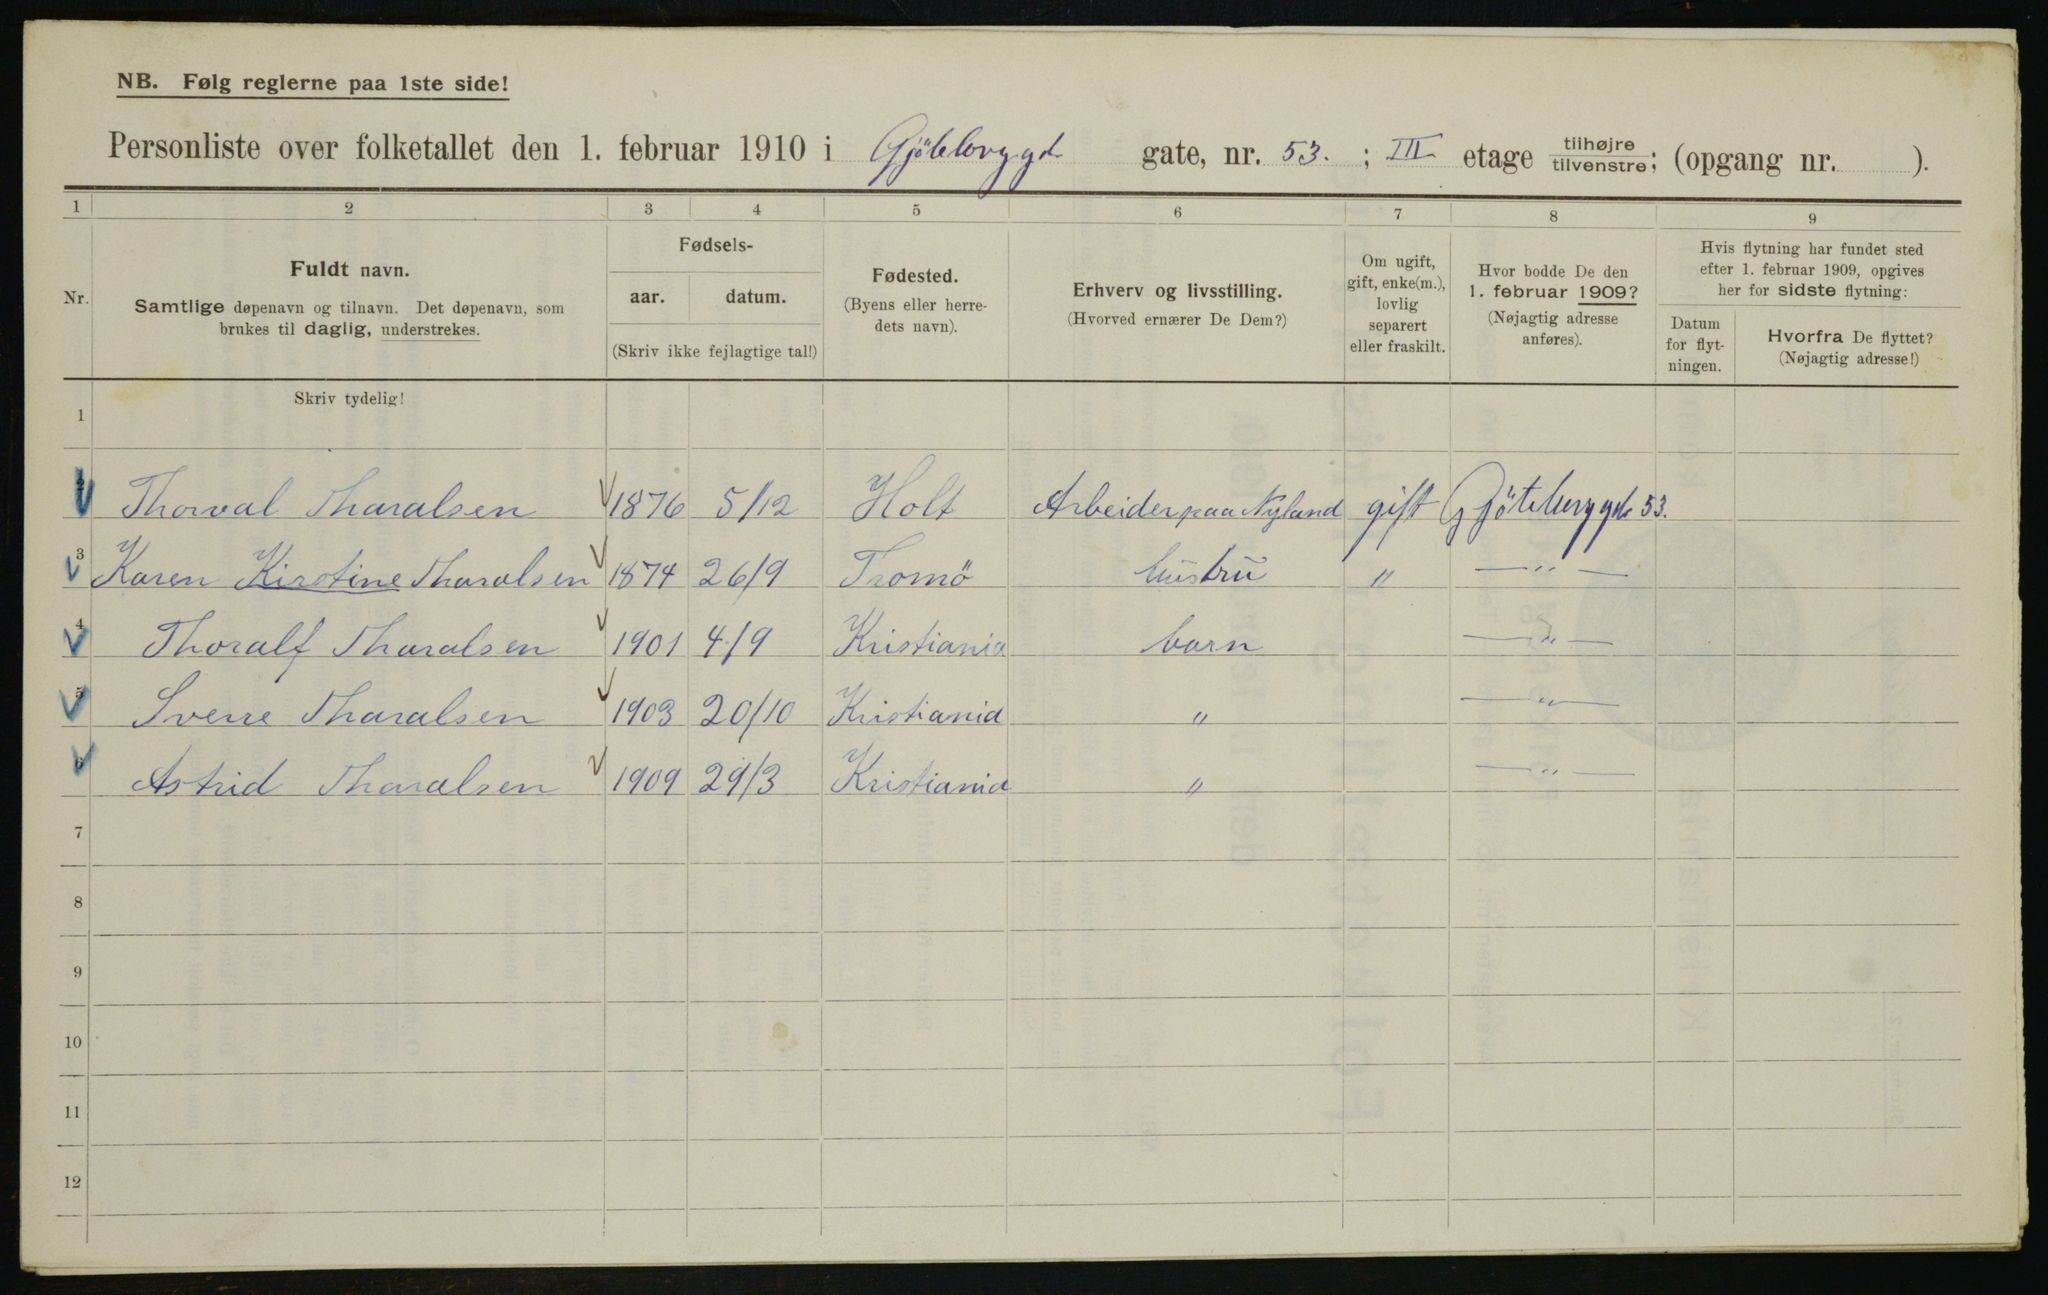 NB. Følg reglerne paa 1ste side!
Personliste over folketallet den 1. februar 1910 i Gjöteborggd gate, nr. 53. ; III etage tilhøjre tilvenstre; (opgang nr. ).
1 2 3 4 5 6 7 8 9
Nr.
Fuldt navn.
Samtlige døpenavn og tilnavn. Det døpenavn, som
brukes til daglig, understrekes.
Fødsels-
aar. datum.
(Skriv ikke fejlagtige tal!)
Fødested.
(Byens eller herre-
dets navn).
Erhverv og livsstilling.
(Hvorved ernærer De Dem?)
Om ugift,
gift, enke(m.),
lovlig
separert
eller fraskilt.
Hvor bodde De den
1. februar 1909?
(Nøjagtig adresse
anføres).
Hvis flytning har fundet sted
efter 1. februar 1909, opgives
her for sidste flytning:
Datum
for flyt-
ningen.
Hvorfra De flyttet?
(Nøjagtig adresse!)
Skriv tydelig!
1
2 Thorval Tharalsen 1876 5/12 Holt Arbeider paa Nyland gift Gjöteborggd 53.
3 Karen Kirstine Tharalsen 1874 26/9 Tromö hustru " — " —
4 Thoralf Tharalsen 1901 4/9 Kristiania barn — " —
5 Sverre Tharalsen 1903 20/10 Kristiania " — " —
6 Astrid Tharalsen 1909 29/3 Kristiania " — " —
7
8
9
10
11
12